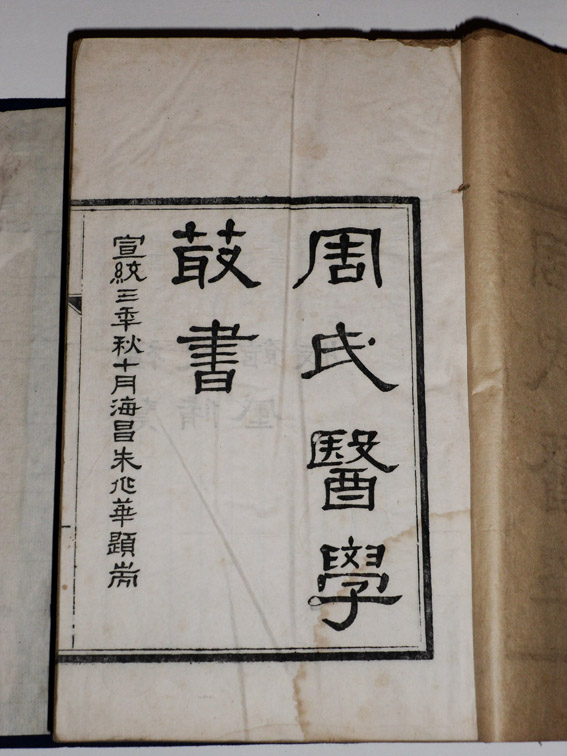 周氏醫學
菆書
宣統三年秋十月海昌朱華題耑